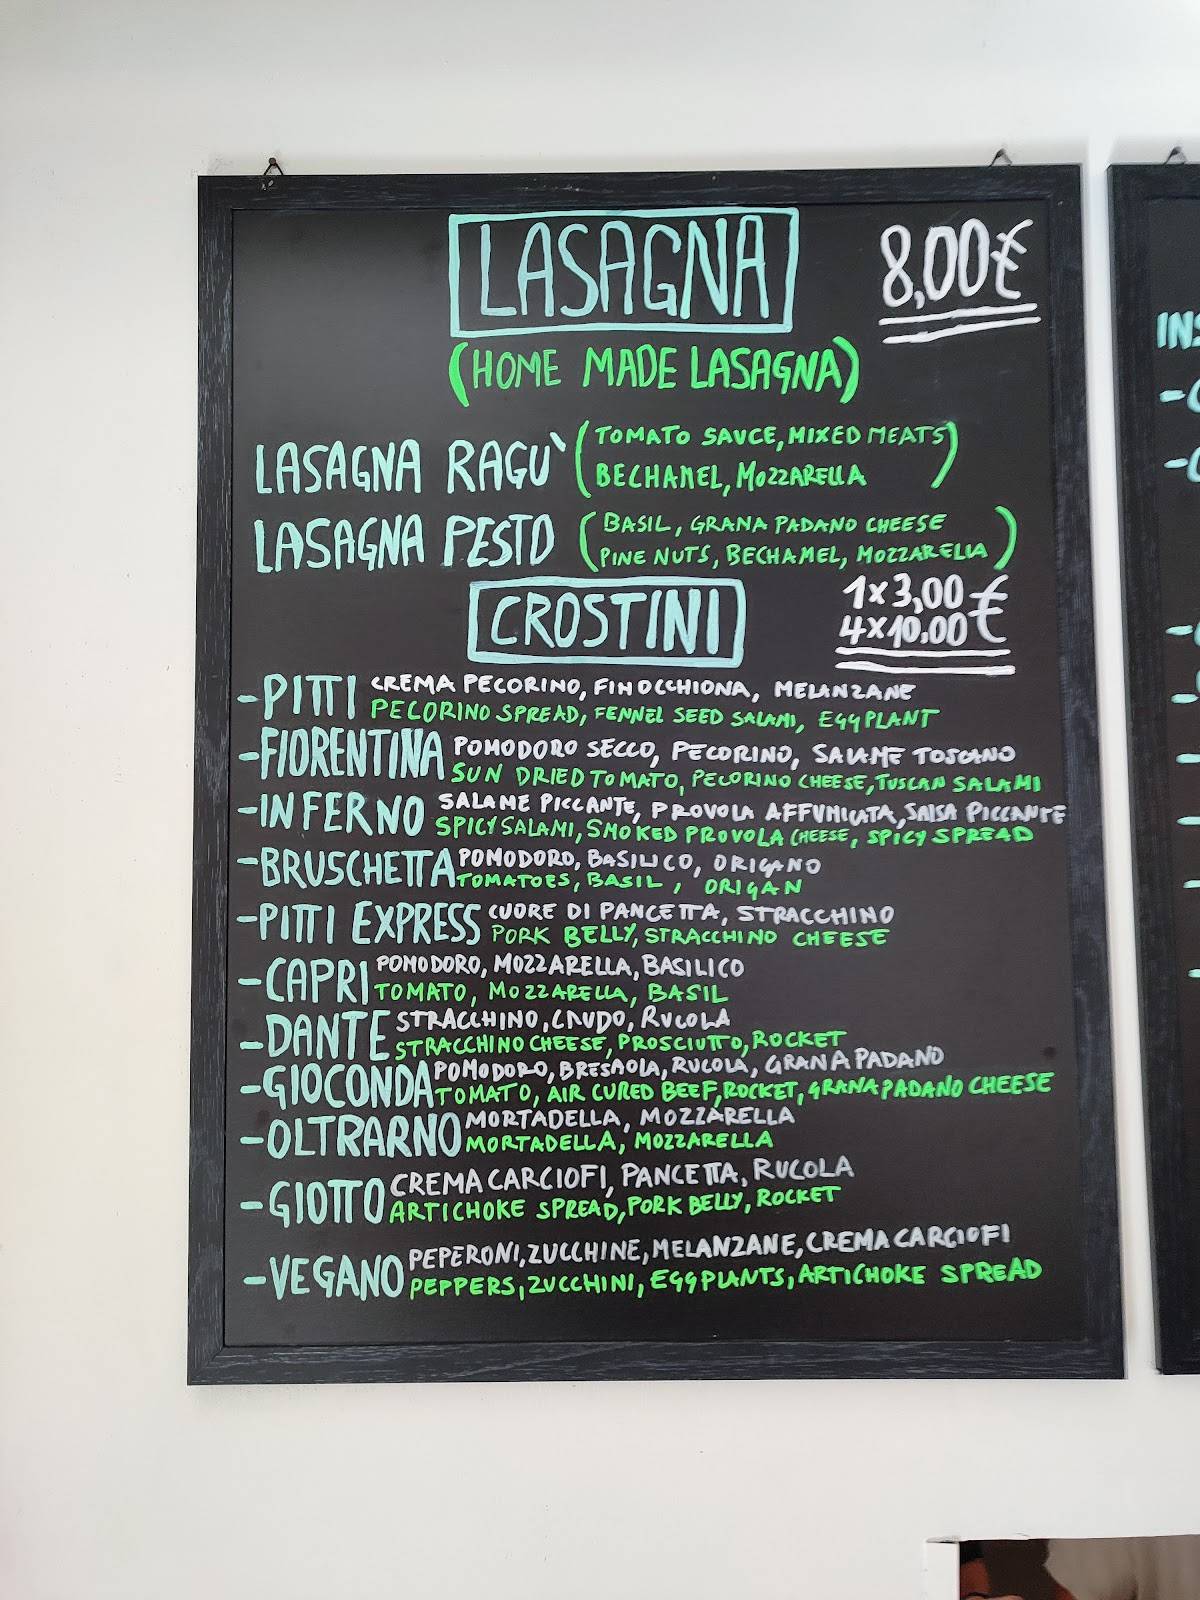 LASAGNA 8,00€
(HOME MADE LASAGNA)
LASAGNA RAGÙ (TOMATO SAUCE, MIXED MEATS
BECHAMEL, MOZZARELLA)
LASAGNA PESTO (BASIL, GRANA PADANO CHEESE
PINE NUTS, BECHAMEL, MOZZARELLA)
CROSTINI 1x3,00 €
4x10.00
-PITTI CREMA PECORINO, FINOCCHIONA, MELANZANE
PECORINO SPREAD, FENNEL SEED SALAMI, EGGPLANT
-FIORENTINA POMODORO SECCO, PECORINO, SALAME TOSCANO
SUN DRIED TOMATO, PECORINO CHEESE, TUSCAN SALAMI
-INFERNO SALAME PICCANTE, PROVOLA AFFUMICATA, SALSA PICCANTE
SPICY SALAMI, SMOKED PROVOLA CHEESE, SPICY SPREAD
-BRUSCHETTA POMODORO, BASILICO, ORIGANO
TOMATOES, BASIL, ORIGAN
-PITTI EXPRESS CUORE DI PANCETTA, STRACCHINO
PORK BELLY, STRACCHINO CHEESE
-CAPRI POMODORO, MOZZARELLA, BASILICO
TOMATO, MOZZARELLA, BASIL
-DANTE STRACCHINO, CRUDO, RUCOLA
STRACCHINO CHEESE, PROSCIUTTO, ROCKET
-GIOCONDA POMODORO, BRESAOLA, RUCOLA, GRANA PADANO
TOMATO, AIR CURED BEEF, ROCKET, GRANA PADANO CHEESE
-OLTRARNO MORTADELLA, MOZZARELLA
MORTADELLA, MOZZARELLA
-GIOTTO CREMA CARCIOFI, PANCETTA, RUCOLA
ARTICHOKE SPREAD, PORK BELLY, ROCKET
-VEGANO PEPERONI, ZUCCHINE, MELANZANE, CREMA CARCIOFI
PEPPERS, ZUCCHINI, EGGPLANTS, ARTICHOKE SPREAD